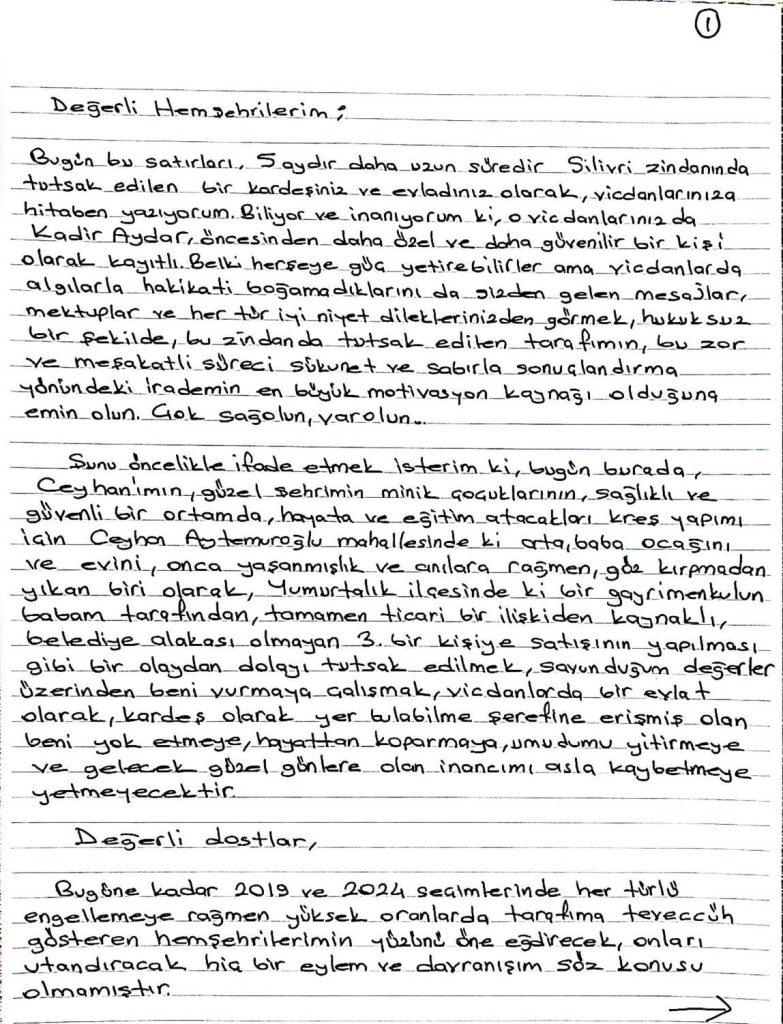 1
Değerli Hemşehrilerim;
Bugün bu satırları, 5 aydır daha uzun süredir Silivri zindanında
tutsak edilen bir kardeşiniz ve evladınız olarak, vicdanlarınıza
hitaben yazıyorum. Biliyor ve inanıyorum ki, o vicdanlarınız da
Kadir Aydar, öncesinden daha özel ve daha güvenilir bir kişi
olarak kayıtlı. Belki herşeye güç yetirebilirler ama vicdanlarda
algılarla hakikati boğamadıklarını da sizden gelen mesajlar,
mektuplar ve her tür iyi niyet dileklerinizden görmek, hukuksuz
bir şekilde, bu zindanda tutsak edilen tarafımın, bu zor
ve meşakatli süreci sükunet ve sabırla sonuçlandırma
yönündeki irademin en büyük motivasyon kaynağı olduğuna
emin olun. Çok sağolun, varolun..
Şunu öncelikle ifade etmek isterim ki, bugün burada,
Ceyhan'ımın, güzel şehrimin minik çocuklarının, sağlıklı ve
güvenli bir ortamda, hayata ve eğitim atacakları kreş yapımı
için Ceyhan Aytemuroğlu mahallesinde ki ata, baba ocağını
ve evini, onca yaşanmışlık ve anılara rağmen, göz kırpmadan
yıkan biri olarak, Yumurtalık ilçesinde ki bir gayrimenkulun
babam tarafından, tamamen ticari bir ilişkiden kaynaklı,
belediye alakası olmayan 3. bir kişiye satışının yapılması
gibi bir olaydan dolayı tutsak edilmek, savunduğum değerler
üzerinden beni vurmaya çalışmak, vicdanlarda bir evlat
olarak, kardeş olarak yer bulabilme şerefine erişmiş olan
beni yok etmeye, hayattan koparmaya, umudumu yitirmeye
ve gelecek güzel günlere olan inancımı asla kaybetmeye
yetmeyecektir.
Değerli dostlar,
Bugüne kadar 2019 ve 2024 seçimlerinde her türlü
engellemeye rağmen yüksek oranlarda tarafıma teveccüh
gösteren hemşehrilerimin yüzünü öne eğdirecek, onları
utandıracak hiç bir eylem ve davranışım söz konusu
olmamıştır.